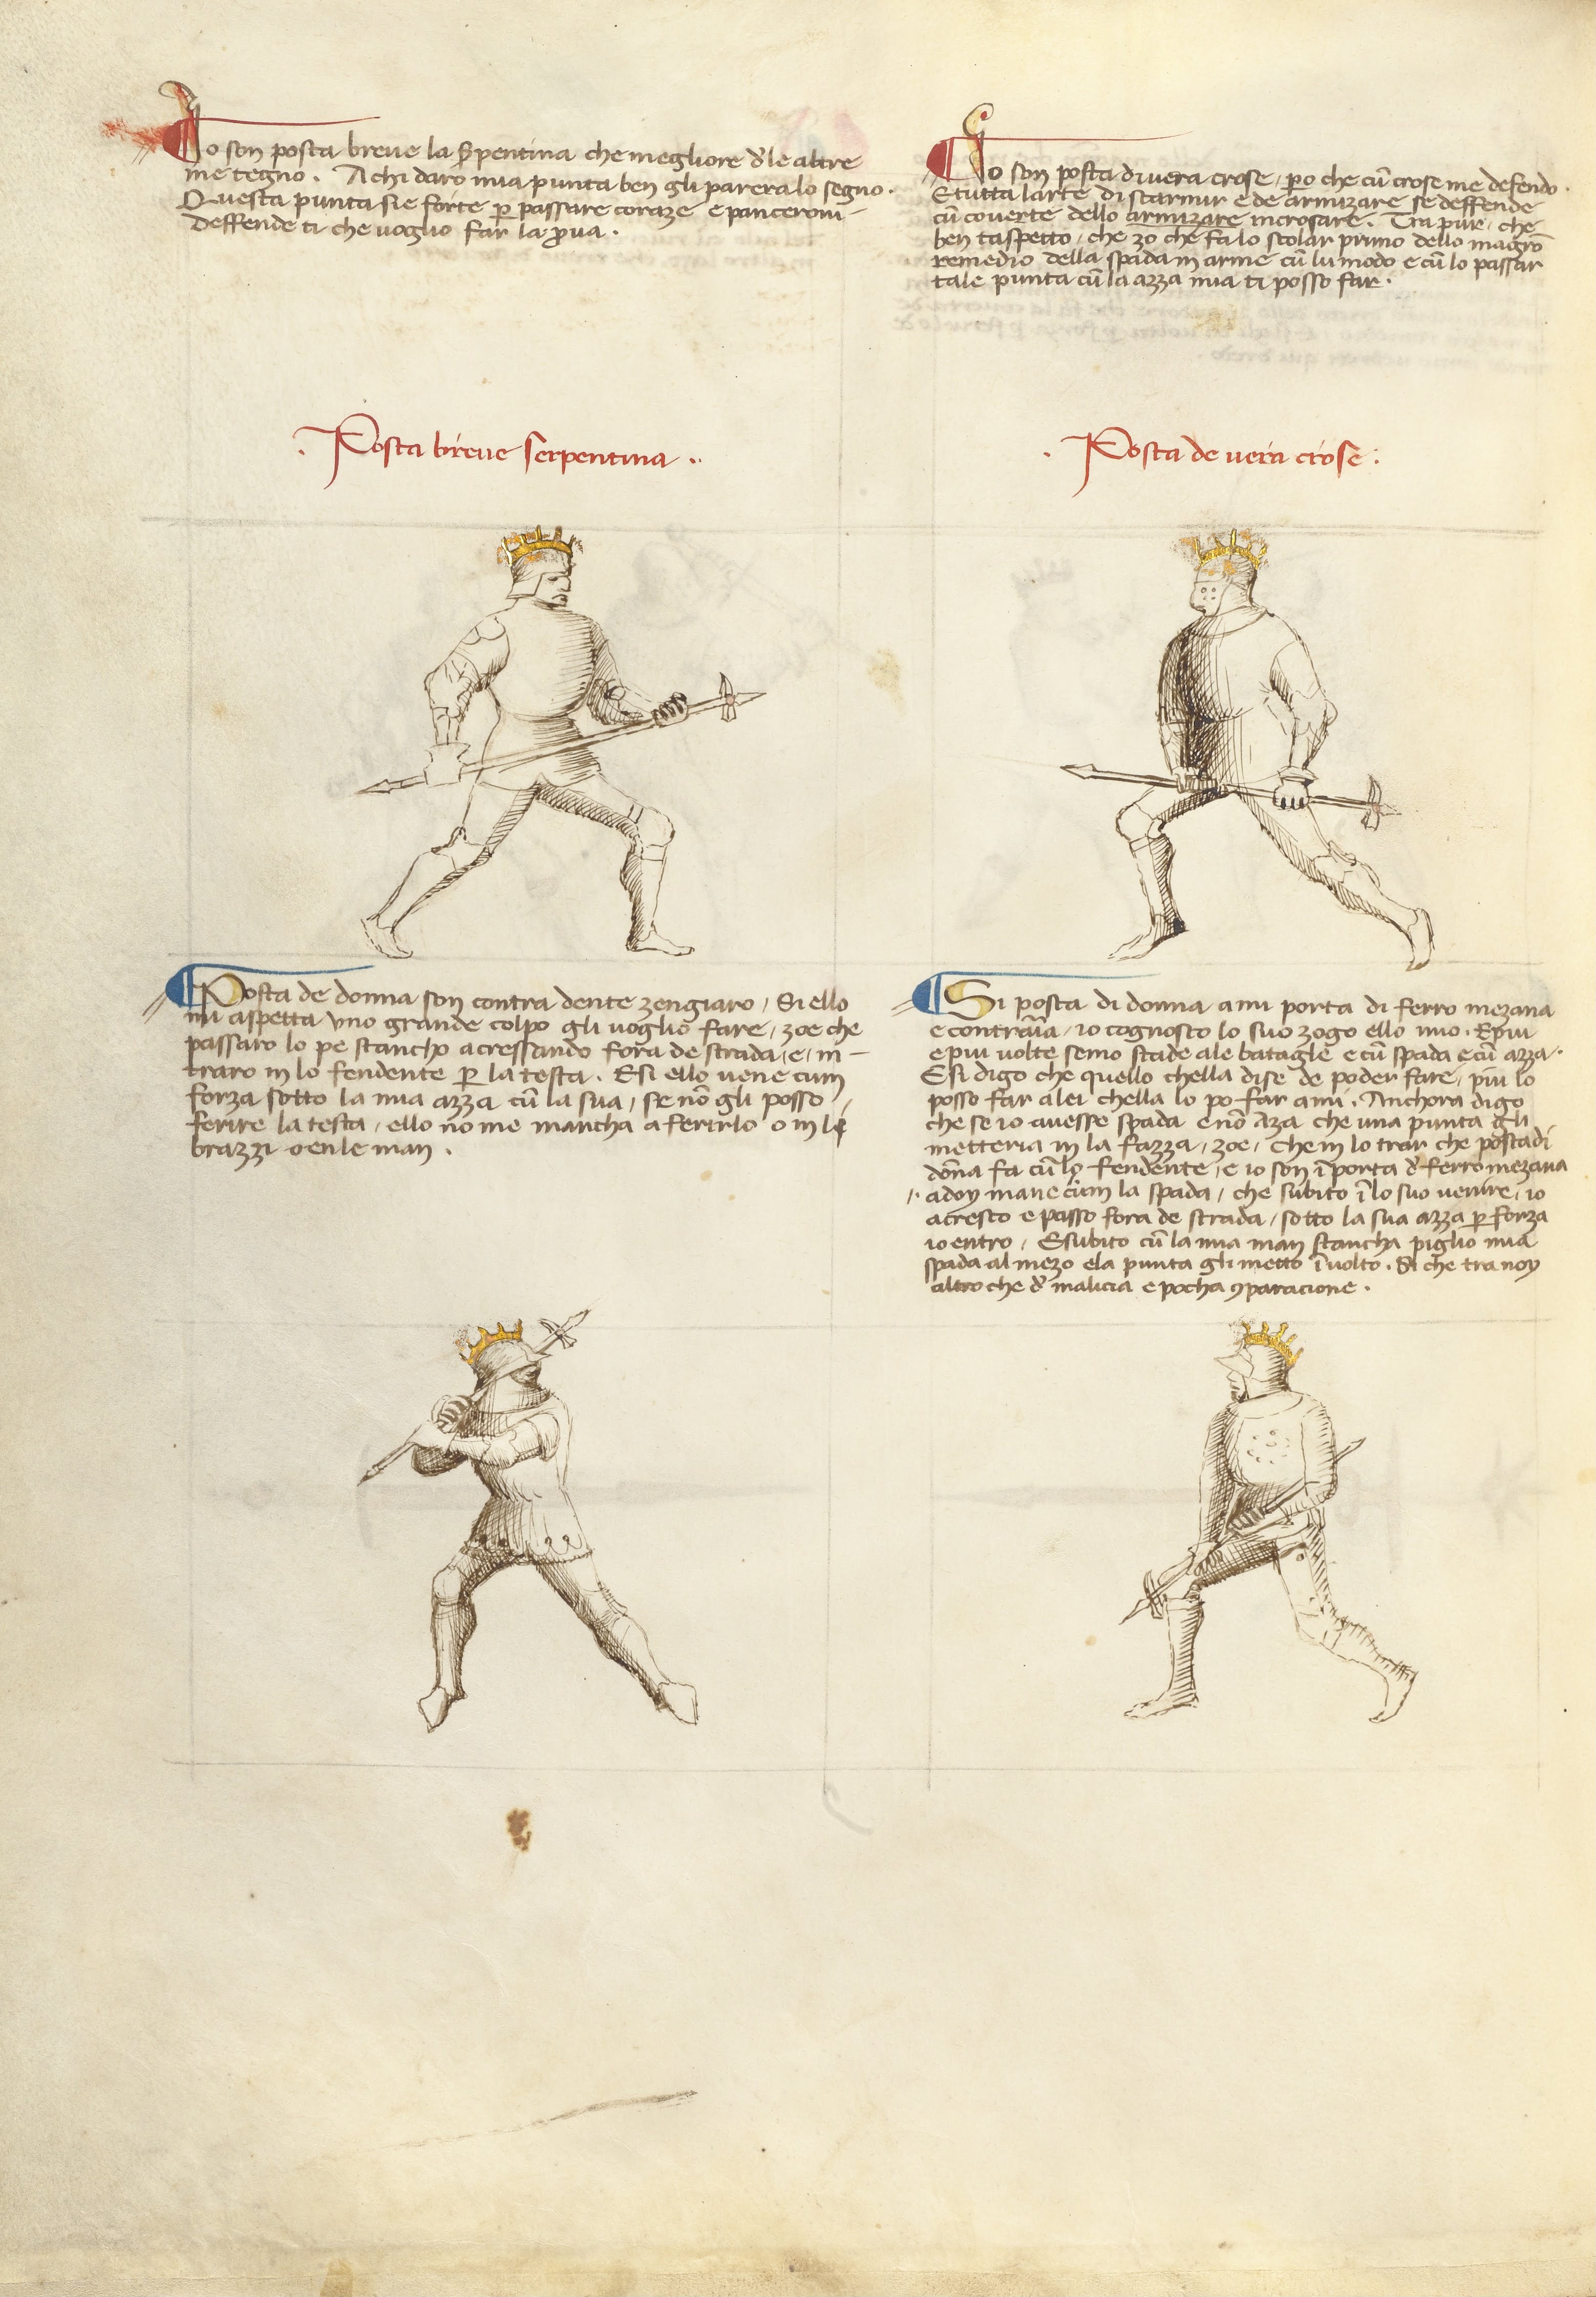 Io son posta breve la s̶pentina che megliore d̕le altre
me tegno. A chi daro mia punta ben gli parera lo segno.
Questa punta si e forte p̲ passare coraze e panceroni
deffende ti che voglio far la p̲va.
. Posta breve serpentina ..
Io son posta di vera crose, p̲o che cū crose me defendo.
E tutta larte di scarmir e de armizare se deffende
cū coverte dello armizare incrosare. Tra pur, che
ben taspetto, che zo che fa lo scolar primo dello magrō
remedio della spada in arme cū lu modo e cū lo passar
tale punta cū la azza mia ti posso far.
. Posta de vera crose :
Posta de donna son contra dente zengiaro, Si ello
mi aspetta uno grande colpo gli voglio fare, zoe che
passaro lo pe stancho acressando fora de strada, e, in-
traro in lo fendente p̲ la testa. E si ello vene cum
forza sotto la mia azza cū la sua, se nō gli posso,
ferire la testa, ello no me mancha a ferirlo o in le
brazzi o en le man.
Si posta di donna a mi porta di ferro mezana
e contrāia, io cognosco lo suo zogo ello mio. E piu
e piu volte semo stade ale bataglie e cū spada e cū azza.
E si digo che quello chella dise de poder fare, piu lo
posso far a lei chella lo po far a mi. Anchora digo
che se io avesse spada e nō azza che una punta gli
metteria in la fazza, zoe, che in lo trar che posta di
dōna fa cū lo fendente, e io son ī porta d̕ ferro mezana
,. a doy mane cum la spada, che subito ī lo suo venire, io
acresco e passo fora de strada, sotto la sua azza p̲ forza
io entro, E subito cū la mia man stancha piglio mia
spada al mezo e la punta gli metto ī volto. Si che tra noy
altro che d̕ malicia e pocha ꝯparacione.